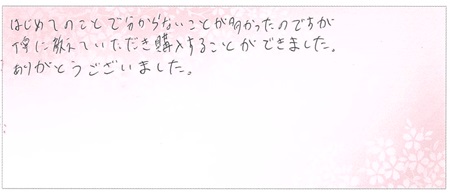 はじめてのことで分からないことが多かったのですが
丁寧に教えていただき購入することができました。
ありがとうございました。